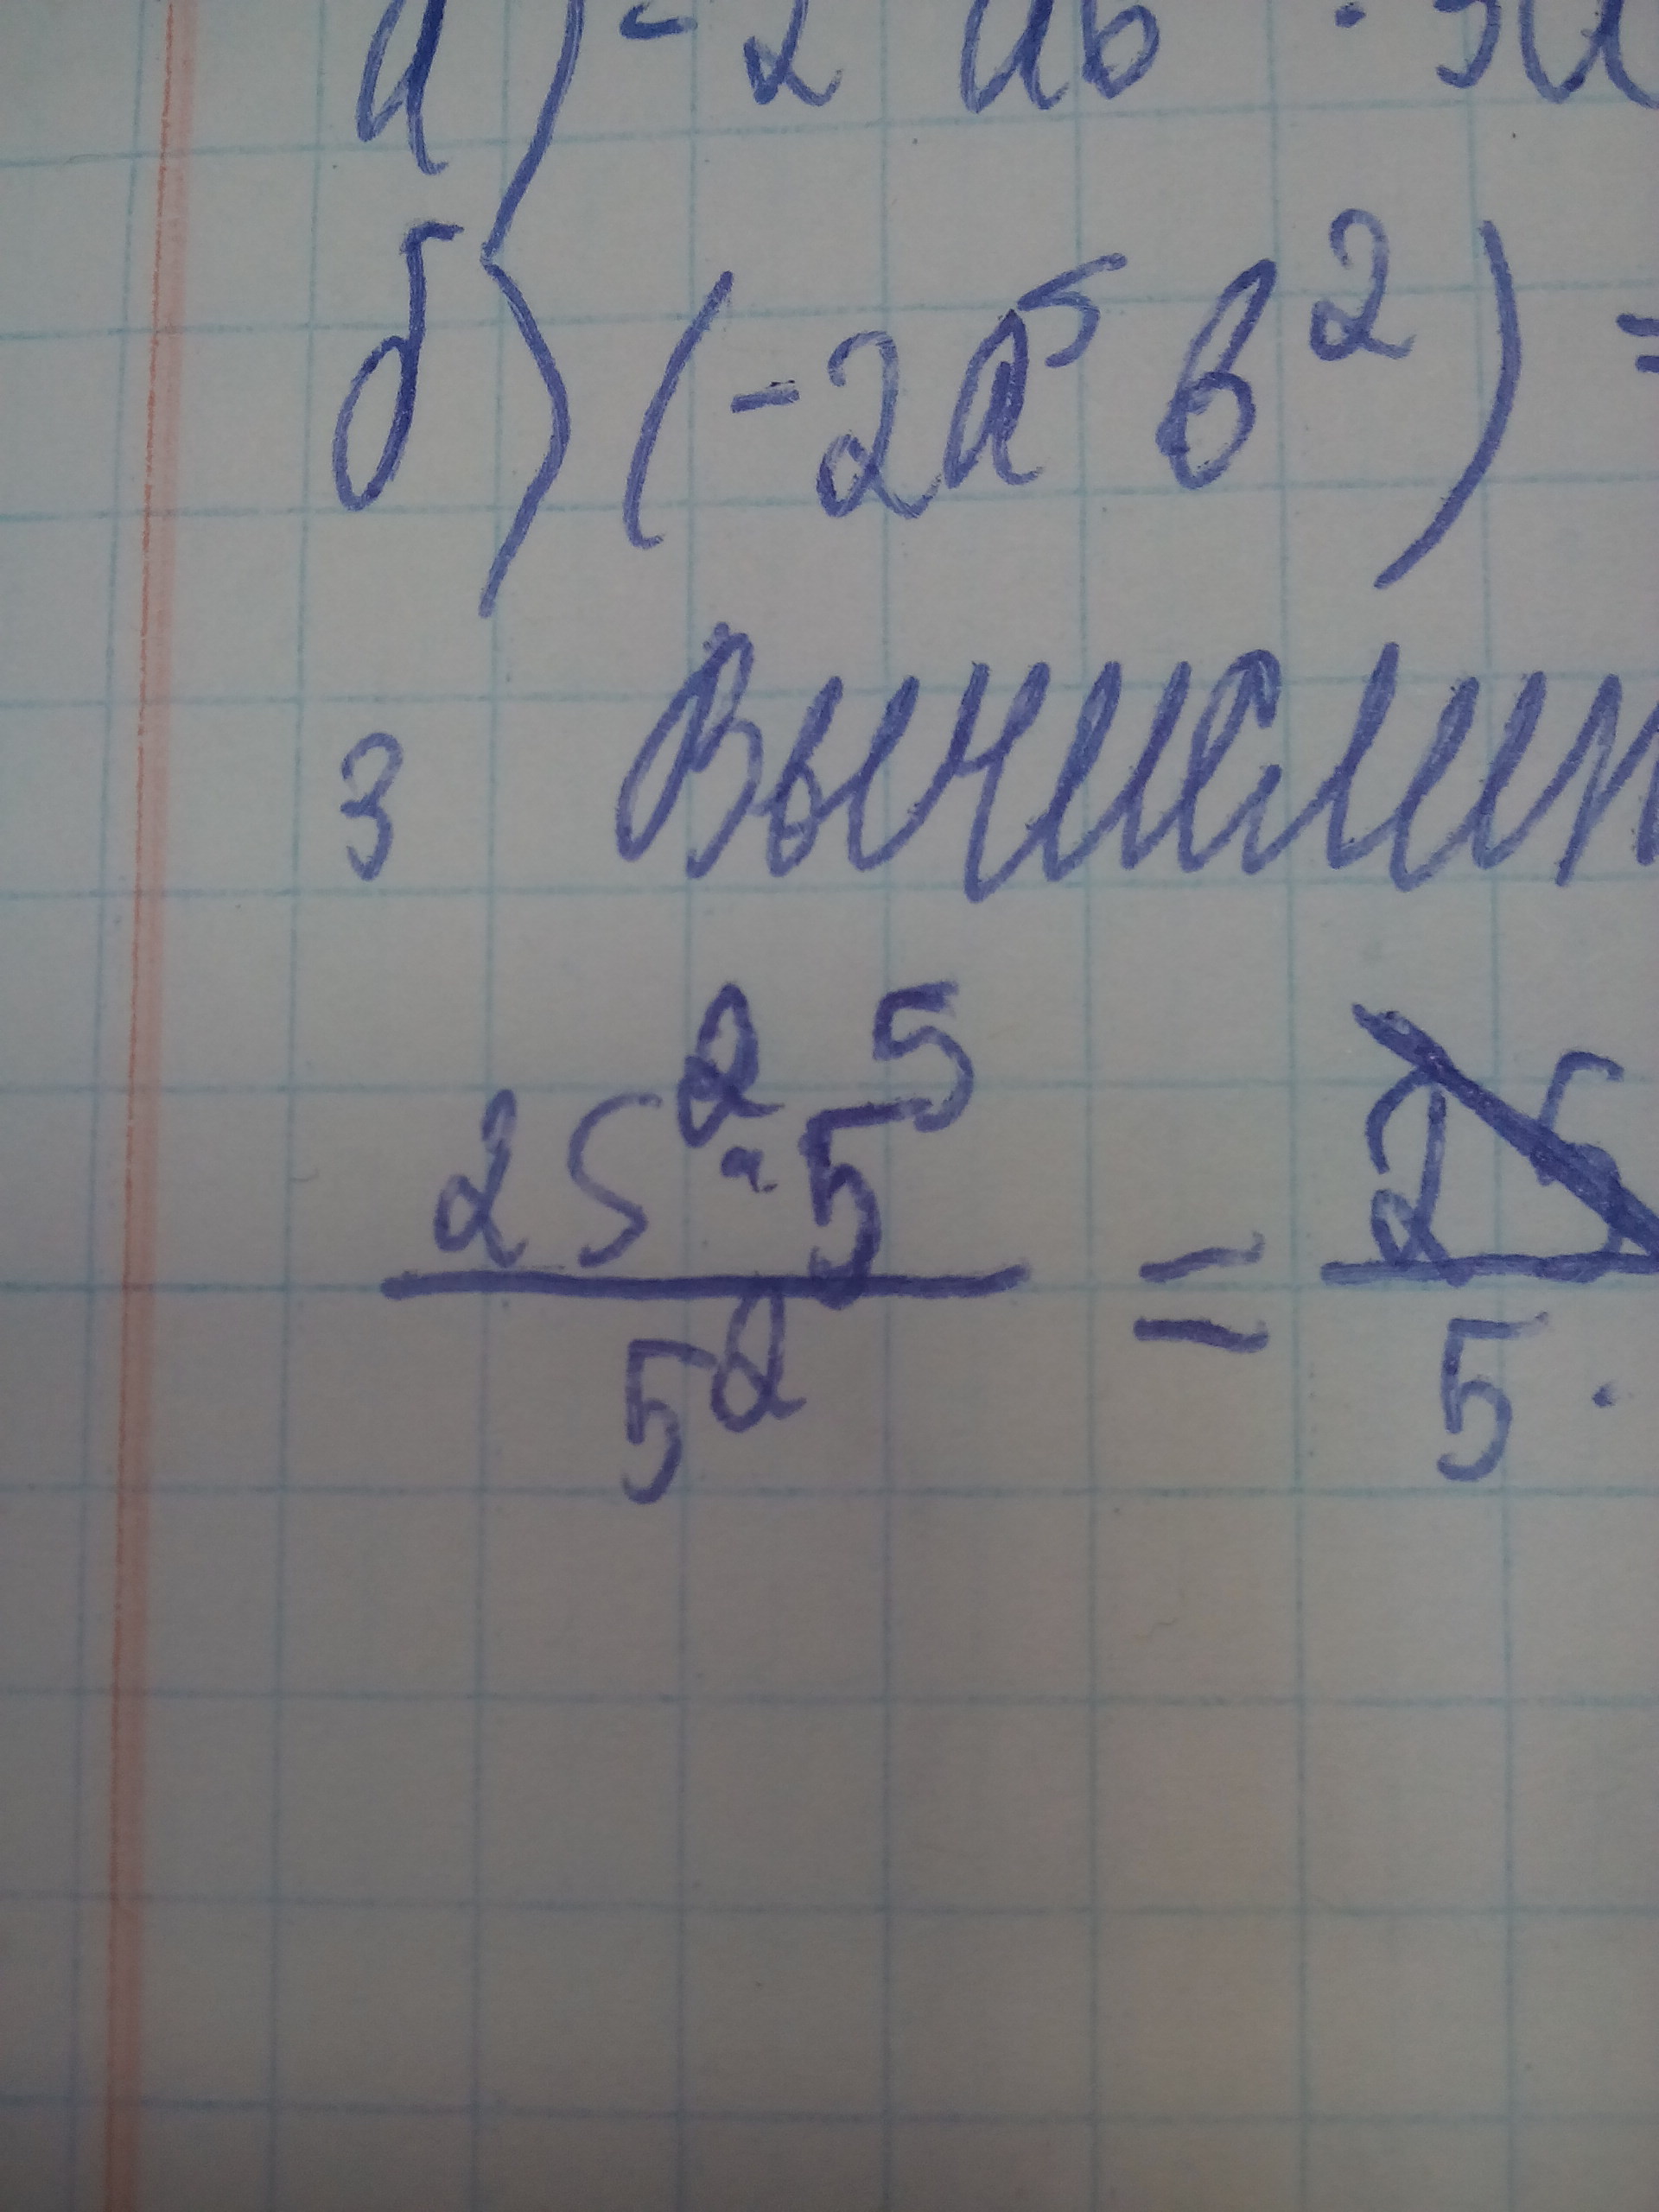 а) -2 ab · 5a
б) (-2a⁵ b²) =
3 Вычислит
25² · 5⁵ / 5² = 25 / 5 ·